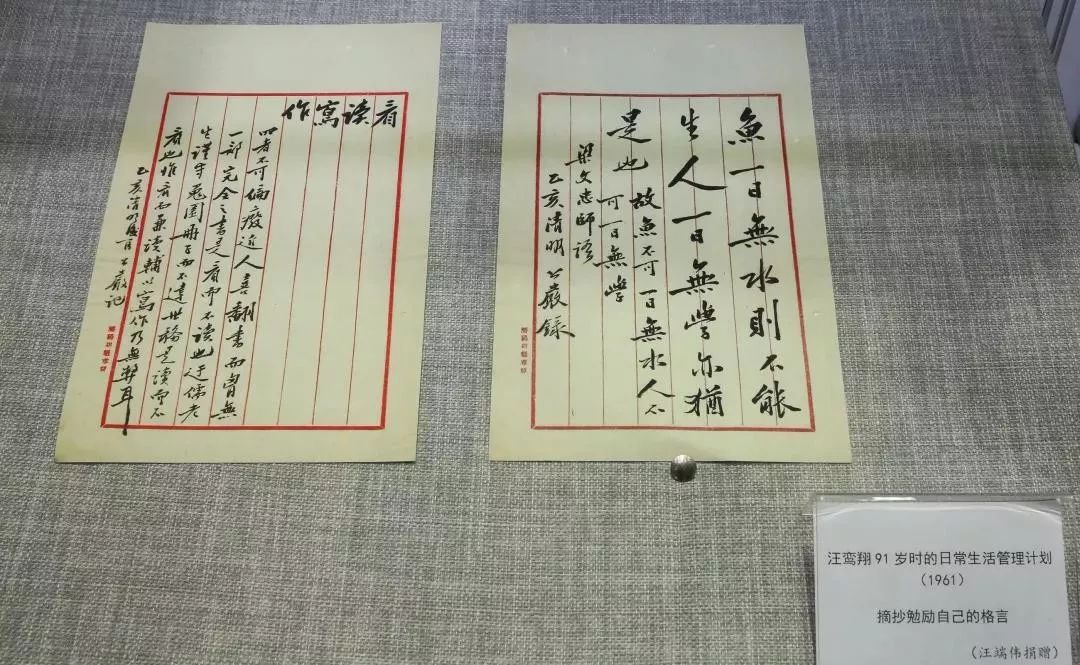 看读寫作
四者不可偏廢近人喜翻書而胸無
一部完全之書是看而不读也迂儒老
生謹守兎園冊子而不達世務是读而不
看也惟看而兼读輔以寫作乃無弊耳
乙亥清明 公嚴记
魚一日無水則不能
生人一日無學亦猶
是也
故魚不可一日無水人不
可一日無學
梁文忠師語
乙亥清明公嚴錄
汪鸾翔91岁时的日常生活管理计划
（1961）
摘抄勉励自己的格言
（汪端伟捐赠）